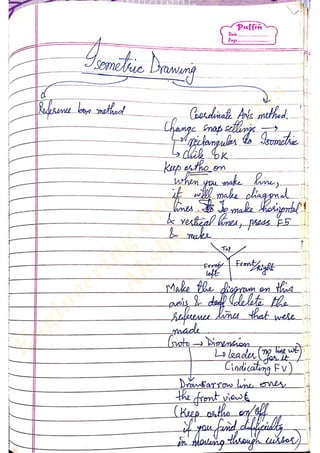 Puffin
Date
Page
Isometric Drawing
Reference box method
Coordinate Axis method.
Change snap setting →
rectangular to Isometric
→ Click OK
Keep ortho on
when you make line,
it will make diagonal
lines. To make horizontal
& vertical lines, press F5
& make
Top
Front/left
Front/right
Make the diagram on this
axis & delete the
reference lines that were
made
Goto → Dimension
→ Leader (no line wt
for it)
(indicating FV)
Draw arrow line over
the front view &
(Keep ortho on/off
if you find difficulty
in moving through cursor)